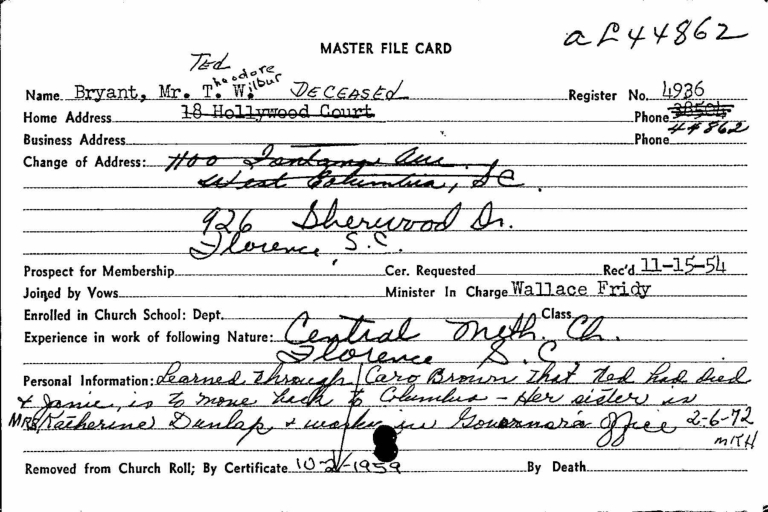 aL44862
MASTER FILE CARD
Ted
Theodore
Wilbur
Name Bryant, Mr. T. W. DECEASED Register No. 4936
Home Address 18 Hollywood Court Phone 38504
Business Address Phone 44862
Change of Address: 1100 Ave.
West Columbia, SC
926 Sherwood Dr.
Florence, S.C.
Prospect for Membership Cer. Requested Rec'd 11-15-54
Joined by Vows Minister In Charge Wallace Fridy
Enrolled in Church School: Dept. Class
Experience in work of following Nature: Central Meth. Ch.
Florence S.C.
Personal Information: Learned through Caro Brown that Ted had died
& Janie, is to move back to Columbia - Her sister is
MRS Katherine Dunlap & works in Governor's Office 2-6-72
MKH
Removed from Church Roll; By Certificate 10-2-1959 By Death